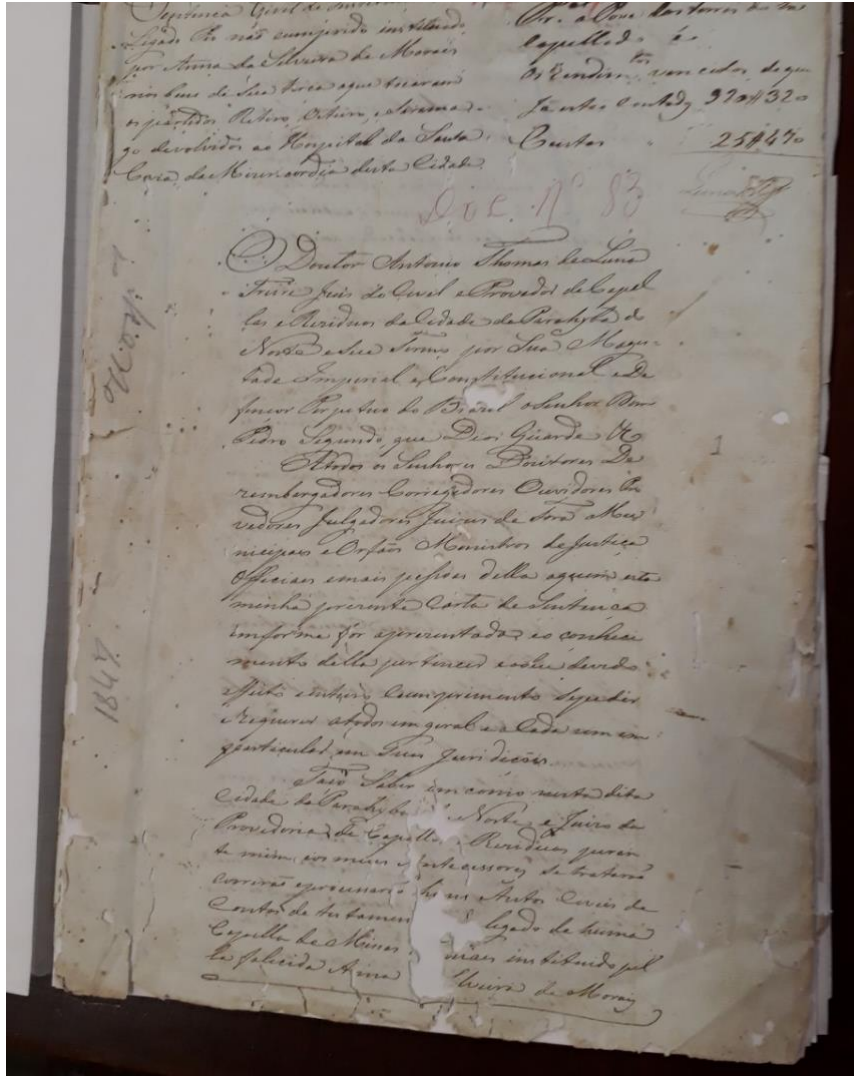 Sentença Civel de
Legado Pio não cumprido instituido
por Anna da Silveira de Morais
nos bens de sua terça a que tocaram
os partidos Retiro,
go devolvidos ao Hospital da Santa
Caza da Mizericordia desta Cidade
Capella é
Os Rendim.tos vencidos de que
Já estes Contados 920#320
Custas 25#470
Doc. Nº 83
O Doutor Antonio Thomas de Luna
Freire Juis do Civel e Provedor de Capel
las e Reziduos da Cidade da Parahyba do
Norte e Seu Termo por Sua Mages-
tade Imperial e Constitucional e De
fensor Perpetuo do Brazil o Senhor Dom
Pedro Segundo, que Deos Guarde &
Atodos os Senhores Doutores De
zembargadores Corregedores Ouvidores Pro
vedores Julgadores Juizes de Fora Mu
nicipaes e Orfãos Menistros de Justiça
Officiaes emais pessoas della aquem esta
minha prezente Carta de Sentença
emforma for aprezentada eo conheci
mento della pertencer eseu devido
effeito einteiro Cumprimento Sepedir
Requerer atodos em geral e a Cada um em
particular em Suas Juridicões
Faço Saber em como nesta dita
Cidade da Parahyba Norte e Juizo da
Provedoria de Capellas Reziduos peran
te mim eos meus Antecessores se trataraõ
correraõ eprocessaraõ huns Autos Civeis de
Contas de testamen legado de huma
Capella de Missas instituido pel
la falicida Anna lveira de Morais
1847